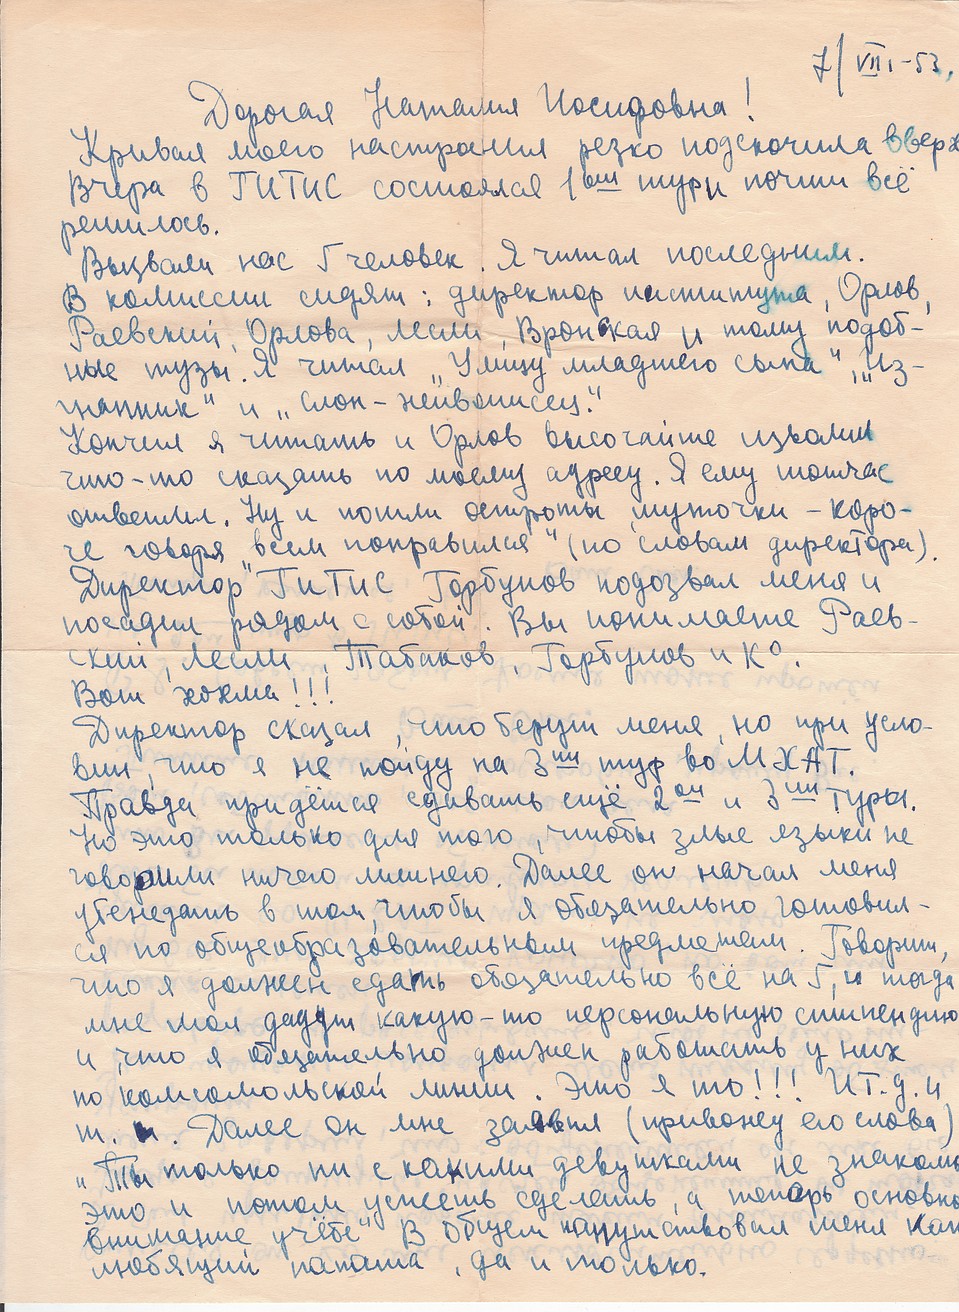 7/VIII-53.
Дорогая Наталия Иосифовна!
Кривая моего настроения резко подскочила вверх
Вчера в ГИТИС состоялся 1ый тур и почти всё
решилось.
Вызвали нас 5 человек. Я читал последним.
В комиссии сидят: директор института, Орлов,
Раевский, Орлова, Лесли, Вронская и тому подоб-
ные тузы. Я читал „Улицу младшего сына", „Из-
гнанник" и „Слон-живописец."
Кончил я читать и Орлов высочайше изволил
что-то сказать по моему адресу. Я ему тотчас
ответил. Ну и пошли остроты, шуточки – коро-
че говоря „всем понравился" (по словам директора).
Директор ГИТИС Горбунов подозвал меня и
посадил рядом с собой. Вы понимаете Раев-
ский, Лесли, Табаков, Горбунов и К°.
Вот хохма!!!
Директор сказал, что берут меня, но при усло-
вии, что я не пойду на 3ий тур во МХАТ.
Правда придётся сдавать ещё 2ой и 3ий туры.
Но это только для того, чтобы злые языки не
говорили ничего лишнего. Далее он начал меня
убеждать в том, чтобы я обязательно готовил-
ся по общеобразовательным предметам. Говорит,
что я должен сдать обязательно всё на 5, и тогда
мне мол дадут какую-то персональную стипендию
и, что я обязательно должен работать у них
по комсомольской линии. Это я то!!! И т.д. и
т.п. Далее он мне заявил (привожу его слова)
„Ты только ни с какими девушками не знакомь
это и потом успеешь сделать, а теперь основно
внимание учёбе" В общем напутствовал меня как
любящий папаша, да и только.